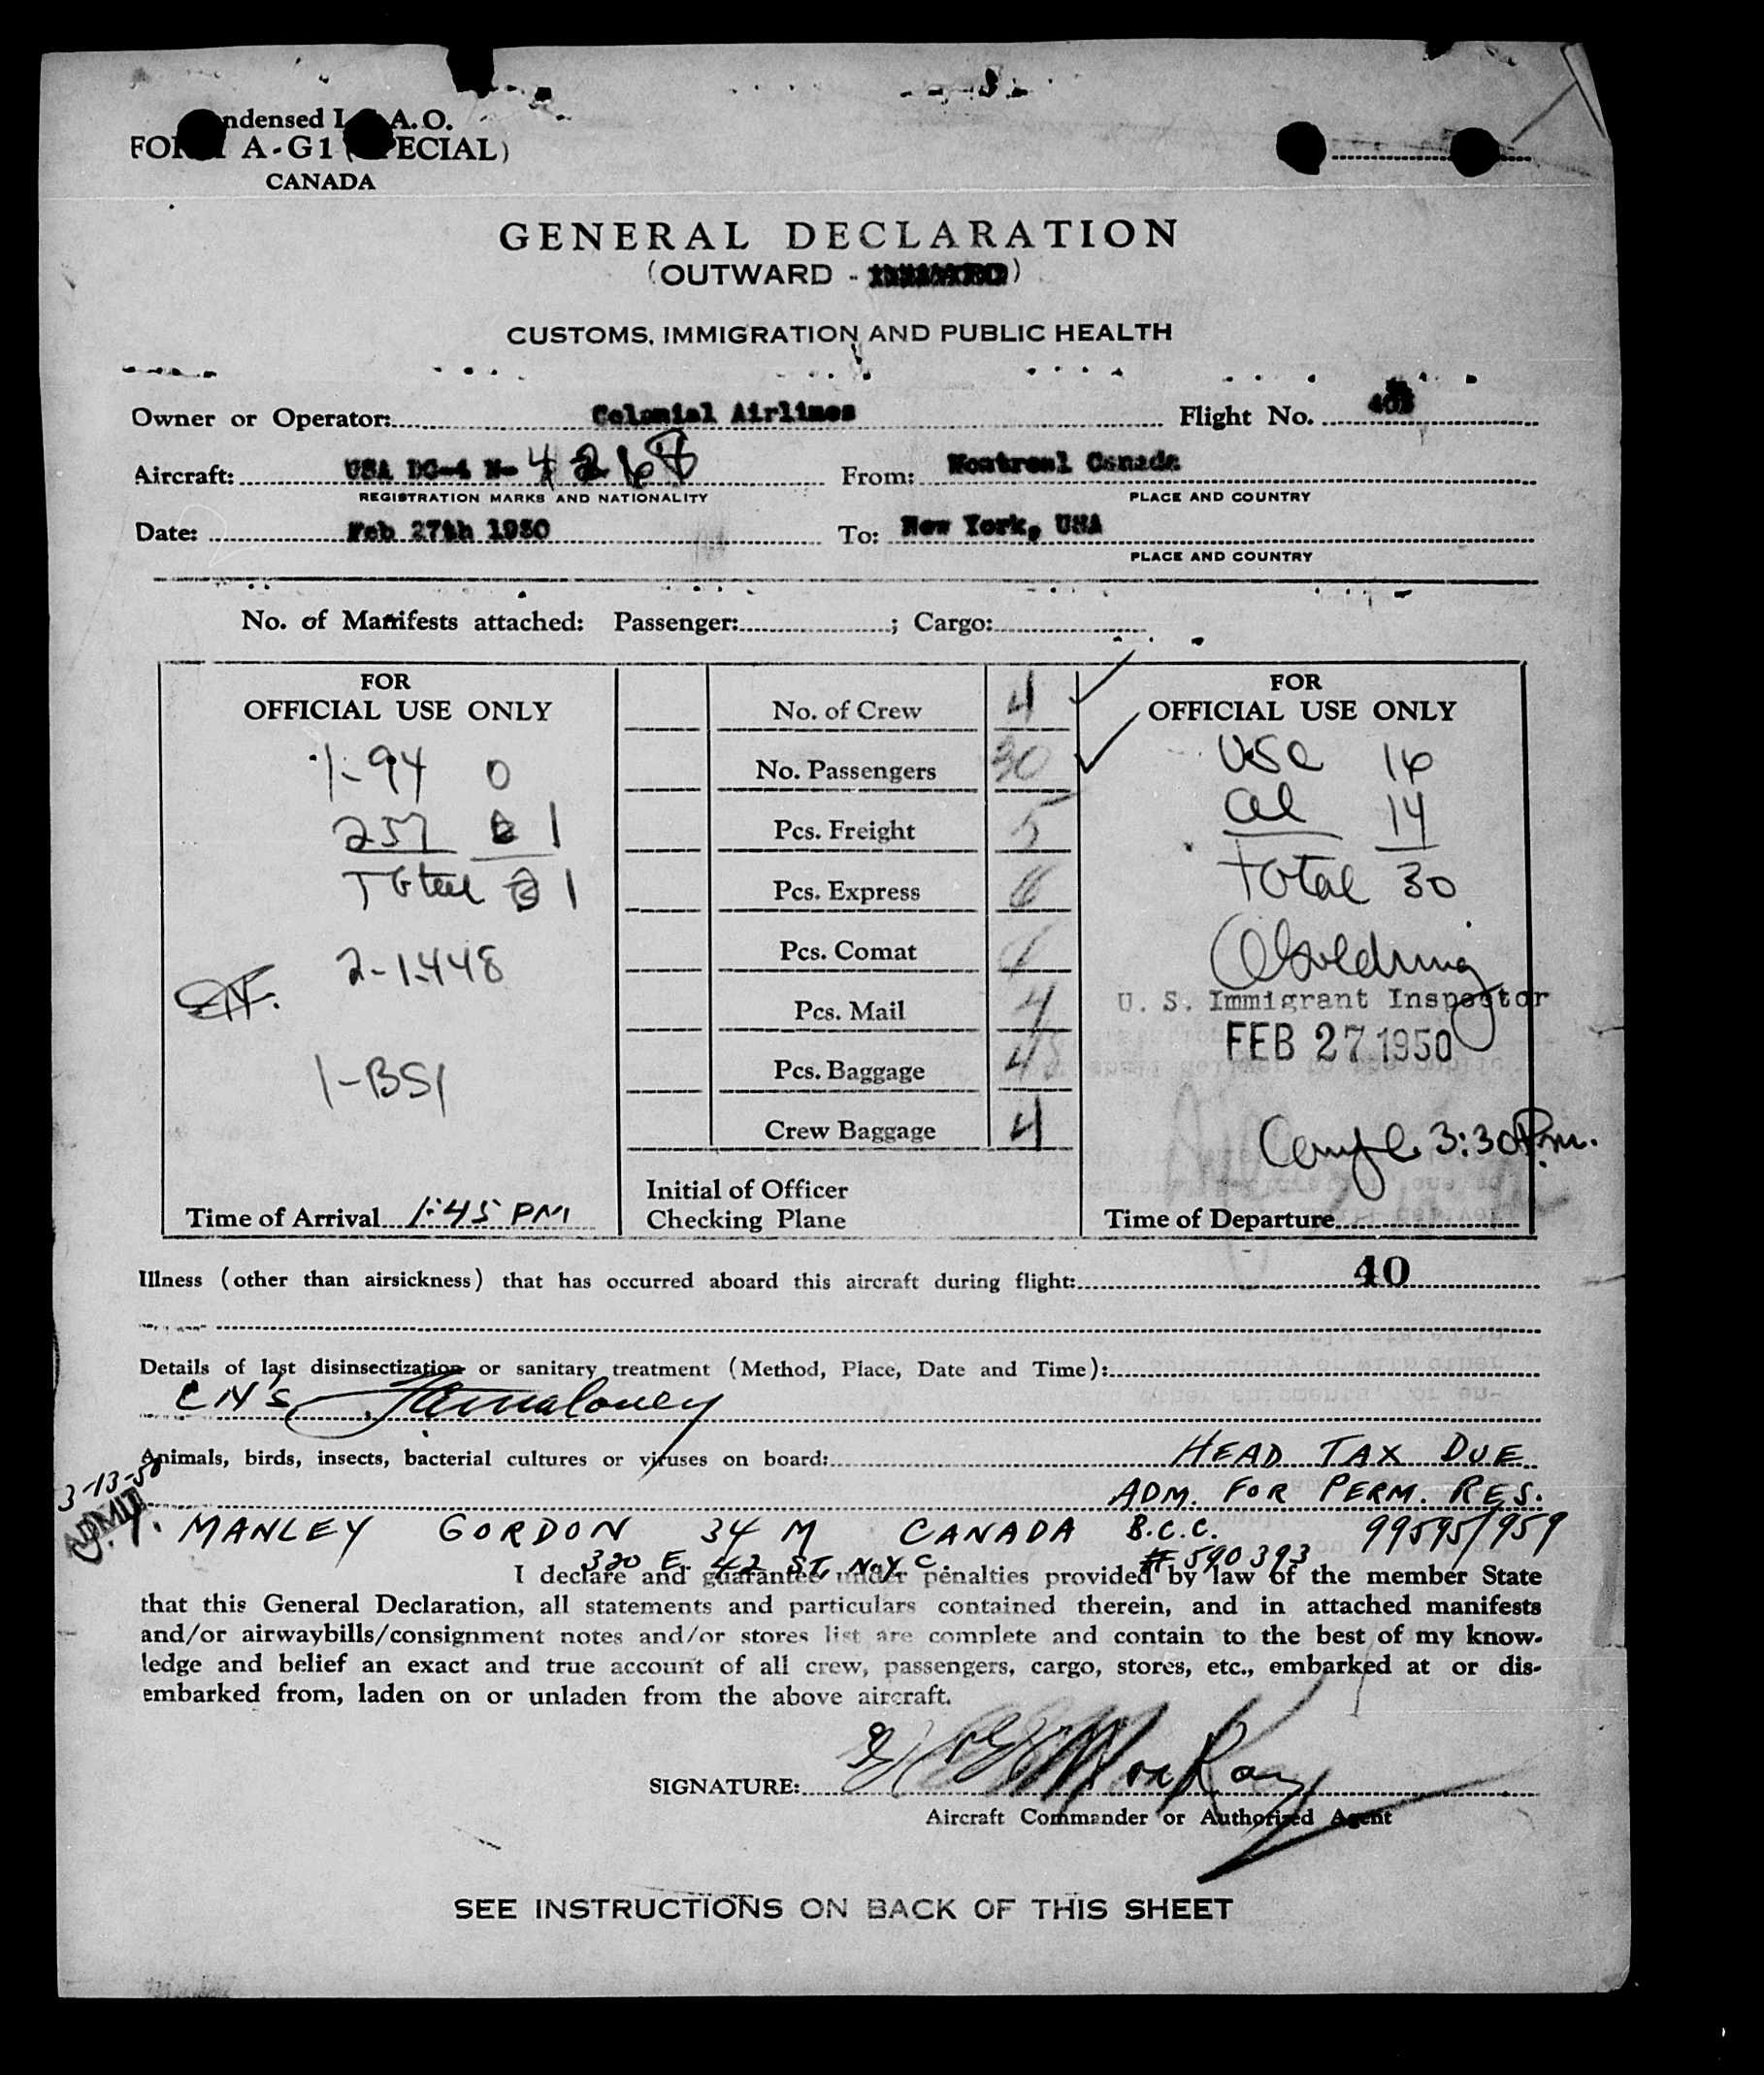 Condensed I.C.A.O.
FORM A-G1 (SPECIAL)
CANADA
GENERAL DECLARATION
(OUTWARD - )
CUSTOMS, IMMIGRATION AND PUBLIC HEALTH
Owner or Operator: Colonial Airlines Flight No. 403
Aircraft: USA DC-4 N- 4268 From: Montreal Canada
REGISTRATION MARKS AND NATIONALITY PLACE AND COUNTRY
Date: Feb 27th 1950 To: New York, USA
PLACE AND COUNTRY
No. of Manifests attached: Passenger: ; Cargo:
FOR
OFFICIAL USE ONLY
1-94 0
257 1
Total 1
2-1448
1-BSI
Time of Arrival 1:45 PM
No. of Crew 4
No. Passengers 30
Pcs. Freight 5
Pcs. Express 6
Pcs. Comat
Pcs. Mail 4
Pcs. Baggage 45
Crew Baggage 4
Initial of Officer
Checking Plane
FOR
OFFICIAL USE ONLY
USC 16
al 14
Total 30
U. S. Immigrant Inspector
FEB 27 1950
3:30 P.m.
Time of Departure
Illness (other than airsickness) that has occurred aboard this aircraft during flight: 40
Details of last disinsectization or sanitary treatment (Method, Place, Date and Time):
Animals, birds, insects, bacterial cultures or viruses on board: HEAD TAX DUE
3-13-50 ADM. FOR PERM. RES.
ADMIT
MANLEY GORDON 34 M CANADA B.C.C. 99595/959
320 E. 42 ST. N.Y.C. # 590393
I declare and guarantee under penalties provided by law of the member State
that this General Declaration, all statements and particulars contained therein, and in attached manifests
and/or airwaybills/consignment notes and/or stores list are complete and contain to the best of my know-
ledge and belief an exact and true account of all crew, passengers, cargo, stores, etc., embarked at or dis-
embarked from, laden on or unladen from the above aircraft.
SIGNATURE:
Aircraft Commander or Authorized Agent
SEE INSTRUCTIONS ON BACK OF THIS SHEET